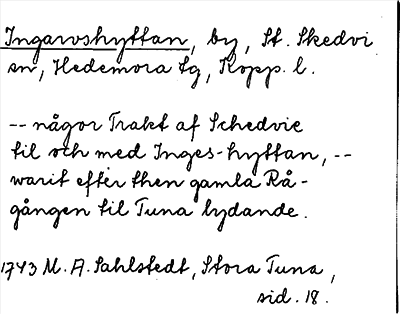 Ingarvshyttan, by, St. Skedvi
sn, Hedemora tg, Kopp. l.
-- någor Trakt af Schedvie
til och med Inges-hyttan, --
warit efter then gamla Rå-
gången til Tuna lydande.
1743 M. A. Sahlstedt, Stora Tuna,
sid. 18.